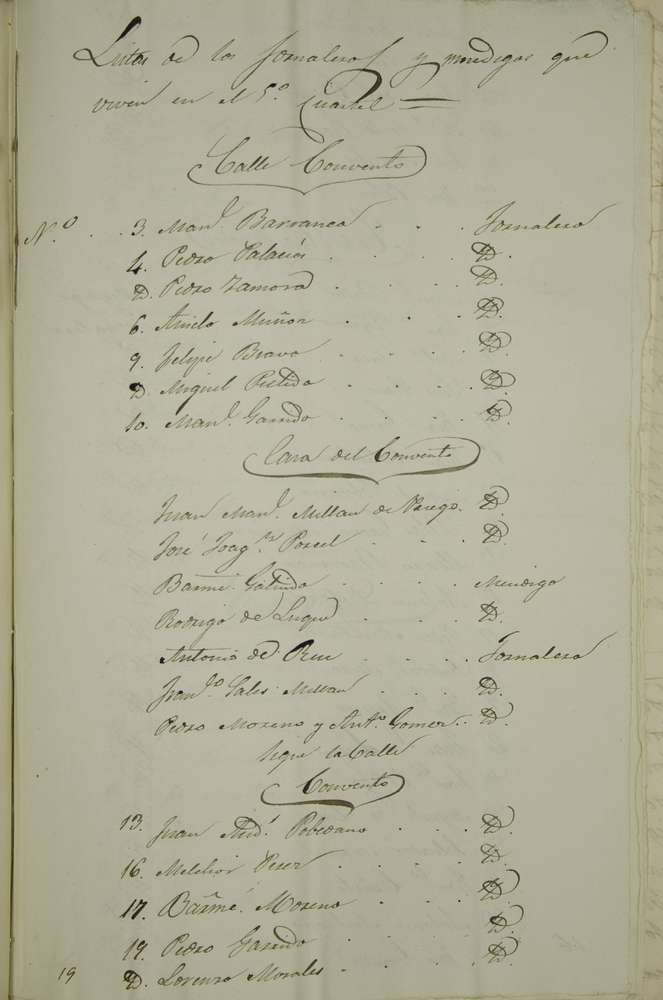 Lista de los Jornaleros y mendigos que
viven en el 5.º Cuartel =
Calle Convento
N.º . . 3. Man.l Barranca . . . Jornalero
4. Pedro Palacios . . . . D.
D. Pedro Zamora . . . . D.
6. Aniclo Muñoz . . . D.
9. Felipe Bravo . . . . D.
D. Miguel Pulido . . . . D.
10. Man.l Garrido . . . . D.
Casa del Convento
Juan Man.l Millan de Priego. D.
José Joaq.n Porcel . . . D.
Barmé. Galindo . . . . Mendigo
Rodrigo de Luque . . . D.
Antonio de Rui . . . . Jornalero
Fran.co Sales Millan . . . D.
Pedro Moreno y Ant.º Gomez . . D.
Sigue la Calle
Convento
13. Juan And.s Poblzano . . . D.
16. Melchor Perez . . . . D.
17. Barmé. Moreno . . . . D.
19. Pedro Garrido . . . . D.
19 D. Lorenzo Morales . . . . D.